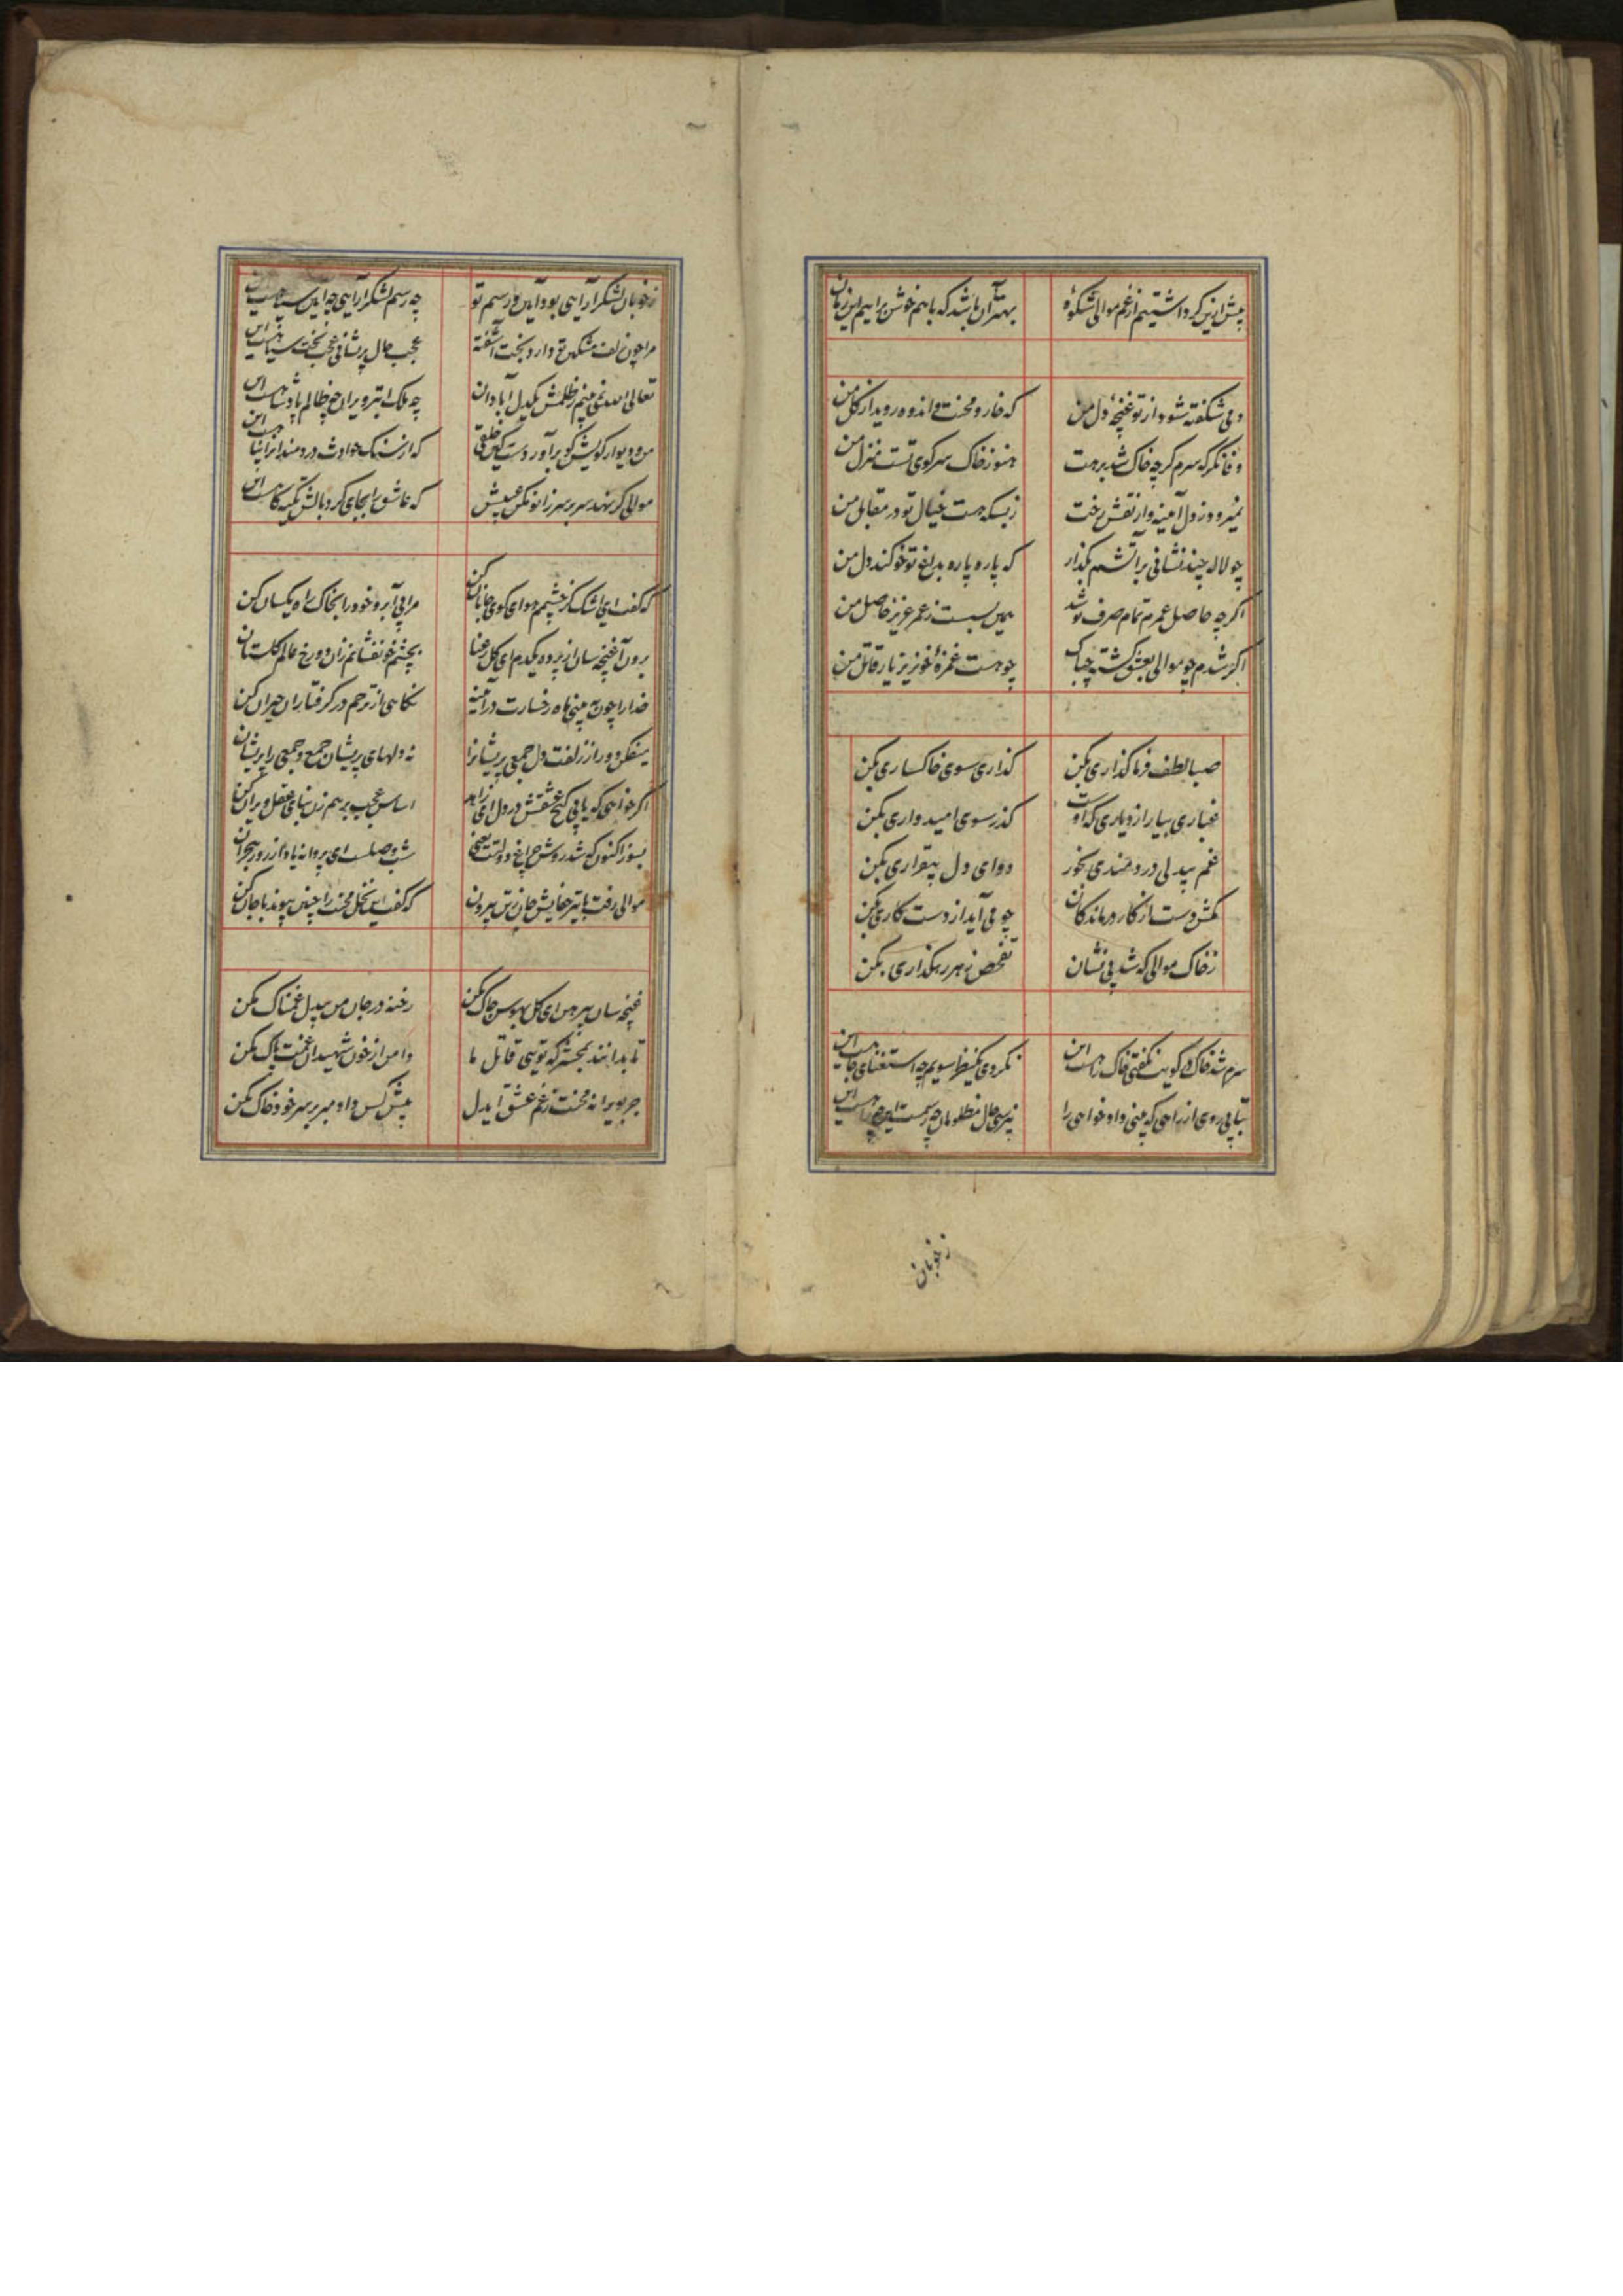 پیش ازین کر داشتیم از غم موالی شکوهٔ
بهتر آن باشد که باهم خوش براییم این زمان
دمی شکفته شود از تو غنچهٔ دل من
که خار و محنت و اندوه روید از کل من
وفا نکر که سرم کرچه خاک شد برهت
هنوز خاک سر کوی تست منزل من
نمیرود ز دل آینه وار نقش رخت
ز بسکه هست خیال تو در مقابل من
چو لاله چند نشانی بر آتشم بگذار
که پاره پاره بداغ تو خو کند دل من
اکرچه حاصل عمرم تمام صرف تو شد
همین بست ز عمر عزیز حاصل من
اکر شدم چو موالی بعشق کشته چه باک
چو هست غمزهٔ خونریز یار قاتل من
صبا لطف فرما کذاری بکن
کذاری سوی خاکساری بکن
غباری بیار از دیاری که اوست
کذر سوی امیدواری بکن
غم بیدلی دردمندی بخور
دوای دل بیقراری بکن
مکش دست از کار درماندکان
چو می آید از دست کاری بکن
ز خاک موالی که شد بی نشان
تفحص ز هر رهکذاری بکن
سرم شد خاک در کویت نکفتی خاک راهست این
نکردی یکنظر سویم چه استغنای جاهست این
بتابی روی از راهی که بینی دادخواهی را
نپرسی حال مظلومان چه رسمست این
ز خوبان
ز خوبان لشکر آرایی بود آیین و رسم تو
چه رسم لشکر آرایی چه آیین سپاهست این
مرا چون زلف مشکین تو دارد بخت آشفته
عجب حال پریشانی عجب بخت سیاهست این
تعالی الله نمی بینم ز ظلمش یکدل آبادان
چه ملک ابتر و ویران چه ظالم پادشاهست این
من و دیوار کویش کو برآور دست کین خلقی
که از سنک حوادث دردمندانرا پناهست این
موالی کر نهد سر بر سر زانو مکن عیبش
که عاشق را بجای کرد بالش تکیه کاهست این
که کفت ای اشک کز چشمم هوای کوی جانان کن
مرا بی آبرو خود را بخاک راه یکسان کن
برون آ غنچه سان از پرده یکدم ای کل رعنا
بچشم خونفشانم زان دو رخ عالم کلستان کن
خدا را چون به بینی ماه رخسارت در آیینه
نکاهی از ترحم در کرفتاران حیران کن
میفکن دور از زلفت دل جمعی پریشانرا
نه دلهای پریشان جمع و جمعی را پریشان کن
اکر خواهی که یابی کنج عشقش در دل ای زاهد
اساس عجب برهم زن بنای عقل ویران کن
بسوز اکنون که شد روشن چراغ دولتت یعنی
شب وصلست ای پروانه یاد از روز هجران کن
موالی رفت با تیر جفایش جان ز تن بیرون
که کفت این نخل محنت را چنین پیوند با جان کن
غنچه سان پیرهن ای کل بهوس چاک مکن
رخنه در جان من بیدل غمناک مکن
تا بدانند بمحشر که تویی قاتل ما
دامن از خون شهیدان غمت پاک مکن
جز بویرانه محنت ز غم عشق ایدل
پیش کس داد مبر بر سر خود خاک مکن